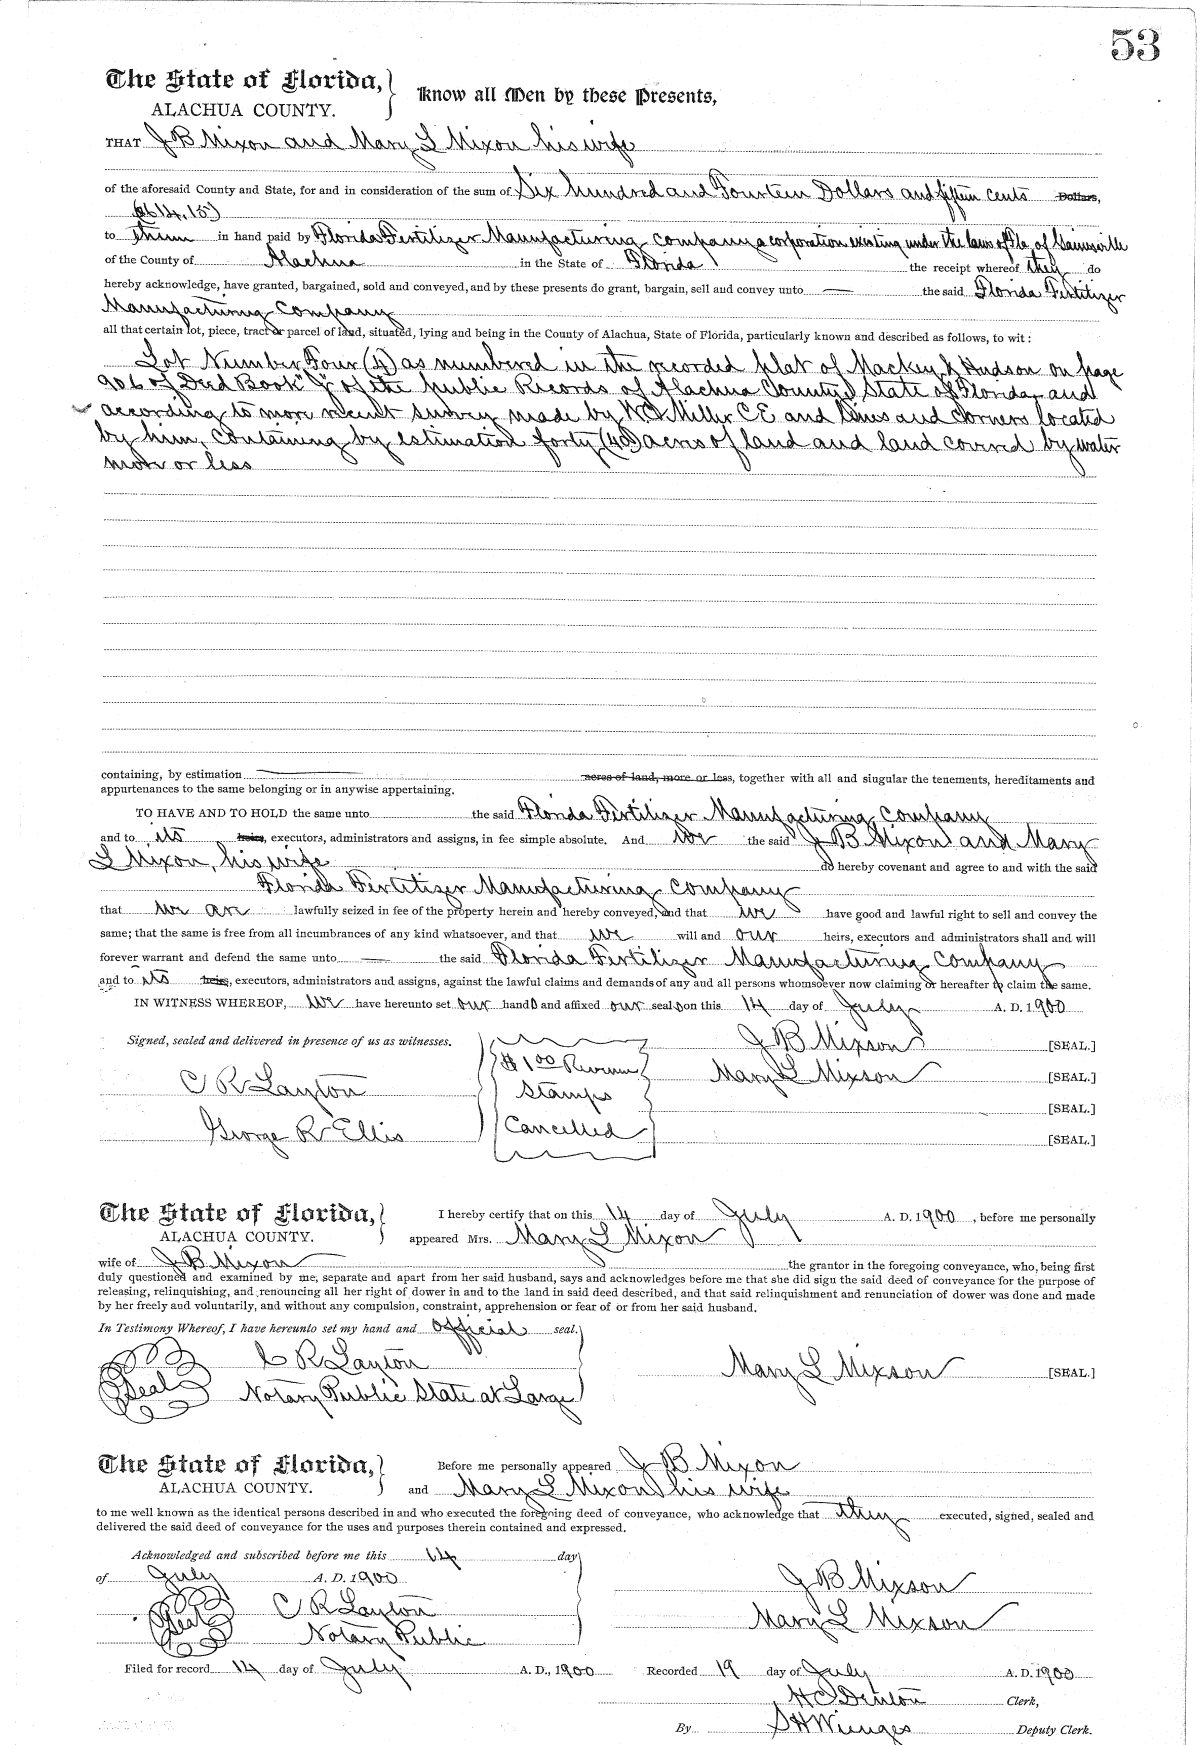 53
The State of Florida,
ALACHUA COUNTY.
Know all Men by these Presents,
THAT J B Mixon and Mary L Mixon his wife
of the aforesaid County and State, for and in consideration of the sum of Six hundred and Fourteen Dollars and fifteen cents Dollars,
($614.15)
to them in hand paid by Florida Fertilizer Manufacturing Company a corporation existing under the laws of Fla of Gainesville
of the County of Alachua in the State of Florida the receipt whereof they do
hereby acknowledge, have granted, bargained, sold and conveyed, and by these presents do grant, bargain, sell and convey unto the said Florida Fertilizer
Manufacturing Company
all that certain lot, piece, tract or parcel of land, situated, lying and being in the County of Alachua, State of Florida, particularly known and described as follows, to wit:
Lot Number Four (4) as numbered in the recorded plat of Mackey & Hudson on page
906 of Deed Book "J" of the public Records of Alachua County State of Florida and
according to more recent survey made by Miller C E and lines and corners located
by him, Containing by estimation forty (40) acres of land and land covered by water
more or less
containing, by estimation acres of land, more or less, together with all and singular the tenements, hereditaments and
appurtenances to the same belonging or in anywise appertaining.
TO HAVE AND TO HOLD the same unto the said Florida Fertilizer Manufacturing Company
and to its heirs, executors, administrators and assigns, in fee simple absolute. And we the said J B Mixon and Mary
L Mixon, his wife do hereby covenant and agree to and with the said
Florida Fertilizer Manufacturing Company
that we are lawfully seized in fee of the property herein and hereby conveyed, and that we have good and lawful right to sell and convey the
same; that the same is free from all incumbrances of any kind whatsoever, and that we will and our heirs, executors and administrators shall and will
forever warrant and defend the same unto the said Florida Fertilizer Manufacturing Company
and to its heirs, executors, administrators and assigns, against the lawful claims and demands of any and all persons whomsoever now claiming or hereafter to claim the same.
IN WITNESS WHEREOF, We have hereunto set our hands and affixed our seals on this 14 day of July A. D. 1900
Signed, sealed and delivered in presence of us as witnesses.
J B Mixson [SEAL.]
$1.00 Revenue
Mary L Mixson [SEAL.]
C R Layton
Stamps
[SEAL.]
George R Ellis
Cancelled
[SEAL.]
The State of Florida,
ALACHUA COUNTY.
I hereby certify that on this 14 day of July A. D. 1900, before me personally
appeared Mrs. Mary L Mixon
wife of J B Mixon the grantor in the foregoing conveyance, who, being first
duly questioned and examined by me, separate and apart from her said husband, says and acknowledges before me that she did sign the said deed of conveyance for the purpose of
releasing, relinquishing, and renouncing all her right of dower in and to the land in said deed described, and that said relinquishment and renunciation of dower was done and made
by her freely and voluntarily, and without any compulsion, constraint, apprehension or fear of or from her said husband.
In Testimony Whereof, I have hereunto set my hand and official seal.
C R Layton
Mary L Mixson [SEAL.]
Seal
Notary Public State at Large
The State of Florida,
ALACHUA COUNTY.
Before me personally appeared J B Mixon
and Mary L Mixon his wife
to me well known as the identical persons described in and who executed the foregoing deed of conveyance, who acknowledge that they executed, signed, sealed and
delivered the said deed of conveyance for the uses and purposes therein contained and expressed.
Acknowledged and subscribed before me this 14 day
of July A. D. 1900
J B Mixson
Seal
C R Layton
Mary L Mixson
Notary Public
Filed for record 14 day of July A. D., 1900 Recorded 19 day of July A. D. 1900
H C Denton Clerk,
By S H Wienges Deputy Clerk.